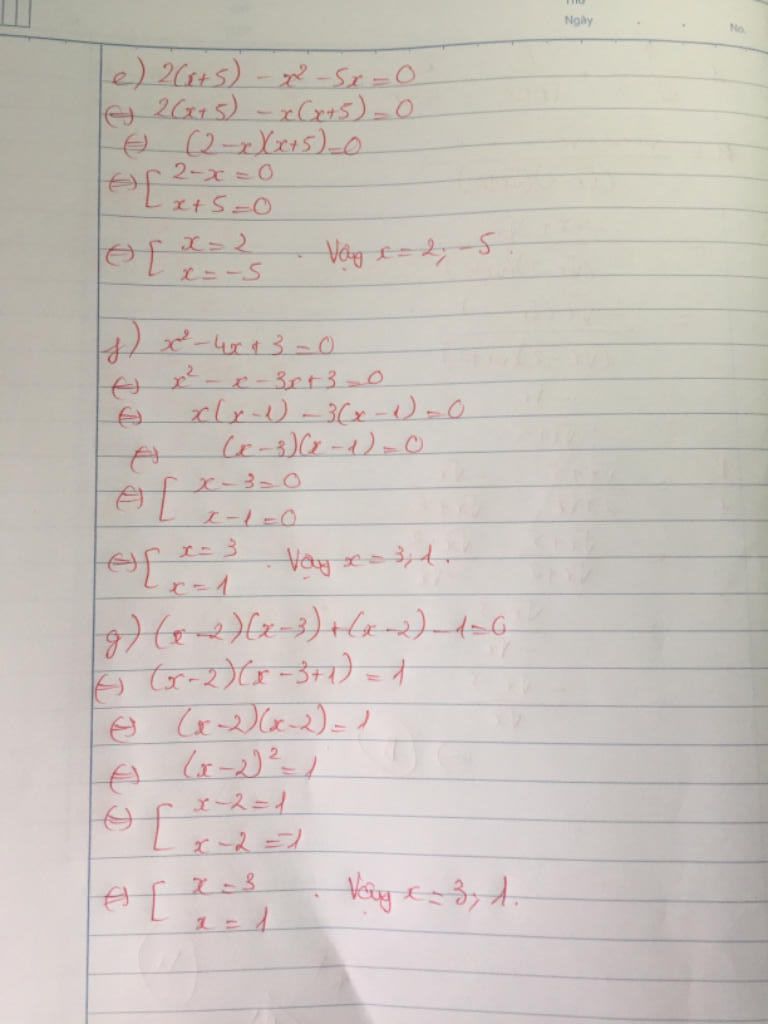 Thứ
Ngày
No.
e) 2(x+5) - x² - 5x = 0
⇔ 2(x+5) - x(x+5) = 0
⇔ (2-x)(x+5) = 0
⇔ [ 2-x = 0
x+5 = 0
⇔ [ x = 2 . Vậy x = 2; -5.
x = -5
f) x² - 4x + 3 = 0
⇔ x² - x - 3x + 3 = 0
⇔ x(x-1) - 3(x-1) = 0
⇔ (x-3)(x-1) = 0
⇔ [ x-3 = 0
x-1 = 0
⇔ [ x = 3 . Vậy x = 3; 1.
x = 1
g) (x-2)(x-3) + (x-2) - 1 = 0
⇔ (x-2)(x-3+1) = 1
⇔ (x-2)(x-2) = 1
⇔ (x-2)² = 1
⇔ [ x-2 = 1
x-2 = -1
⇔ [ x = 3 . Vậy x = 3; 1.
x = 1